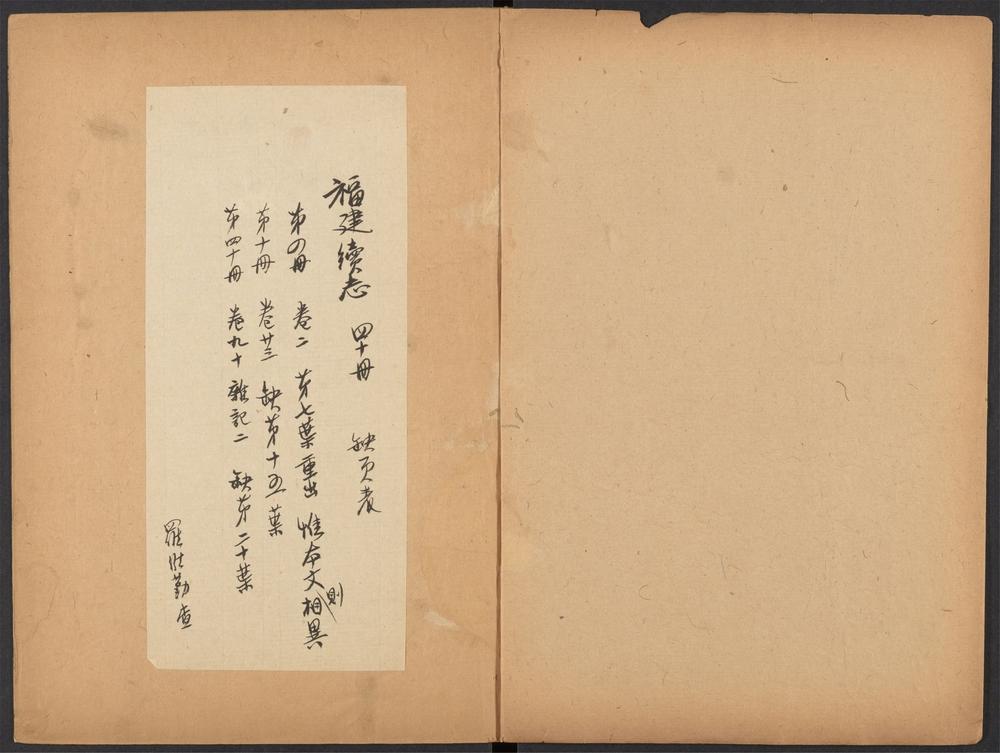 福建續志 四十冊 缺頁者
第四冊 卷二 第七葉重出 惟本文則相異
第十冊 卷廿三 缺第十五葉
第四十冊 卷九十 雜記二 缺第二十葉
羅 勤查